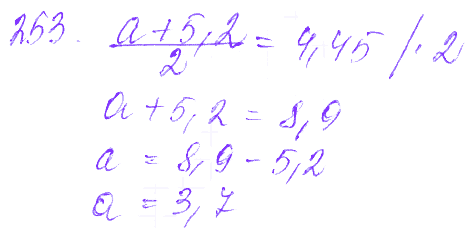 253. (a + 5,2)/2 = 4,45 /·2
a + 5,2 = 8,9
a = 8,9 - 5,2
a = 3,7